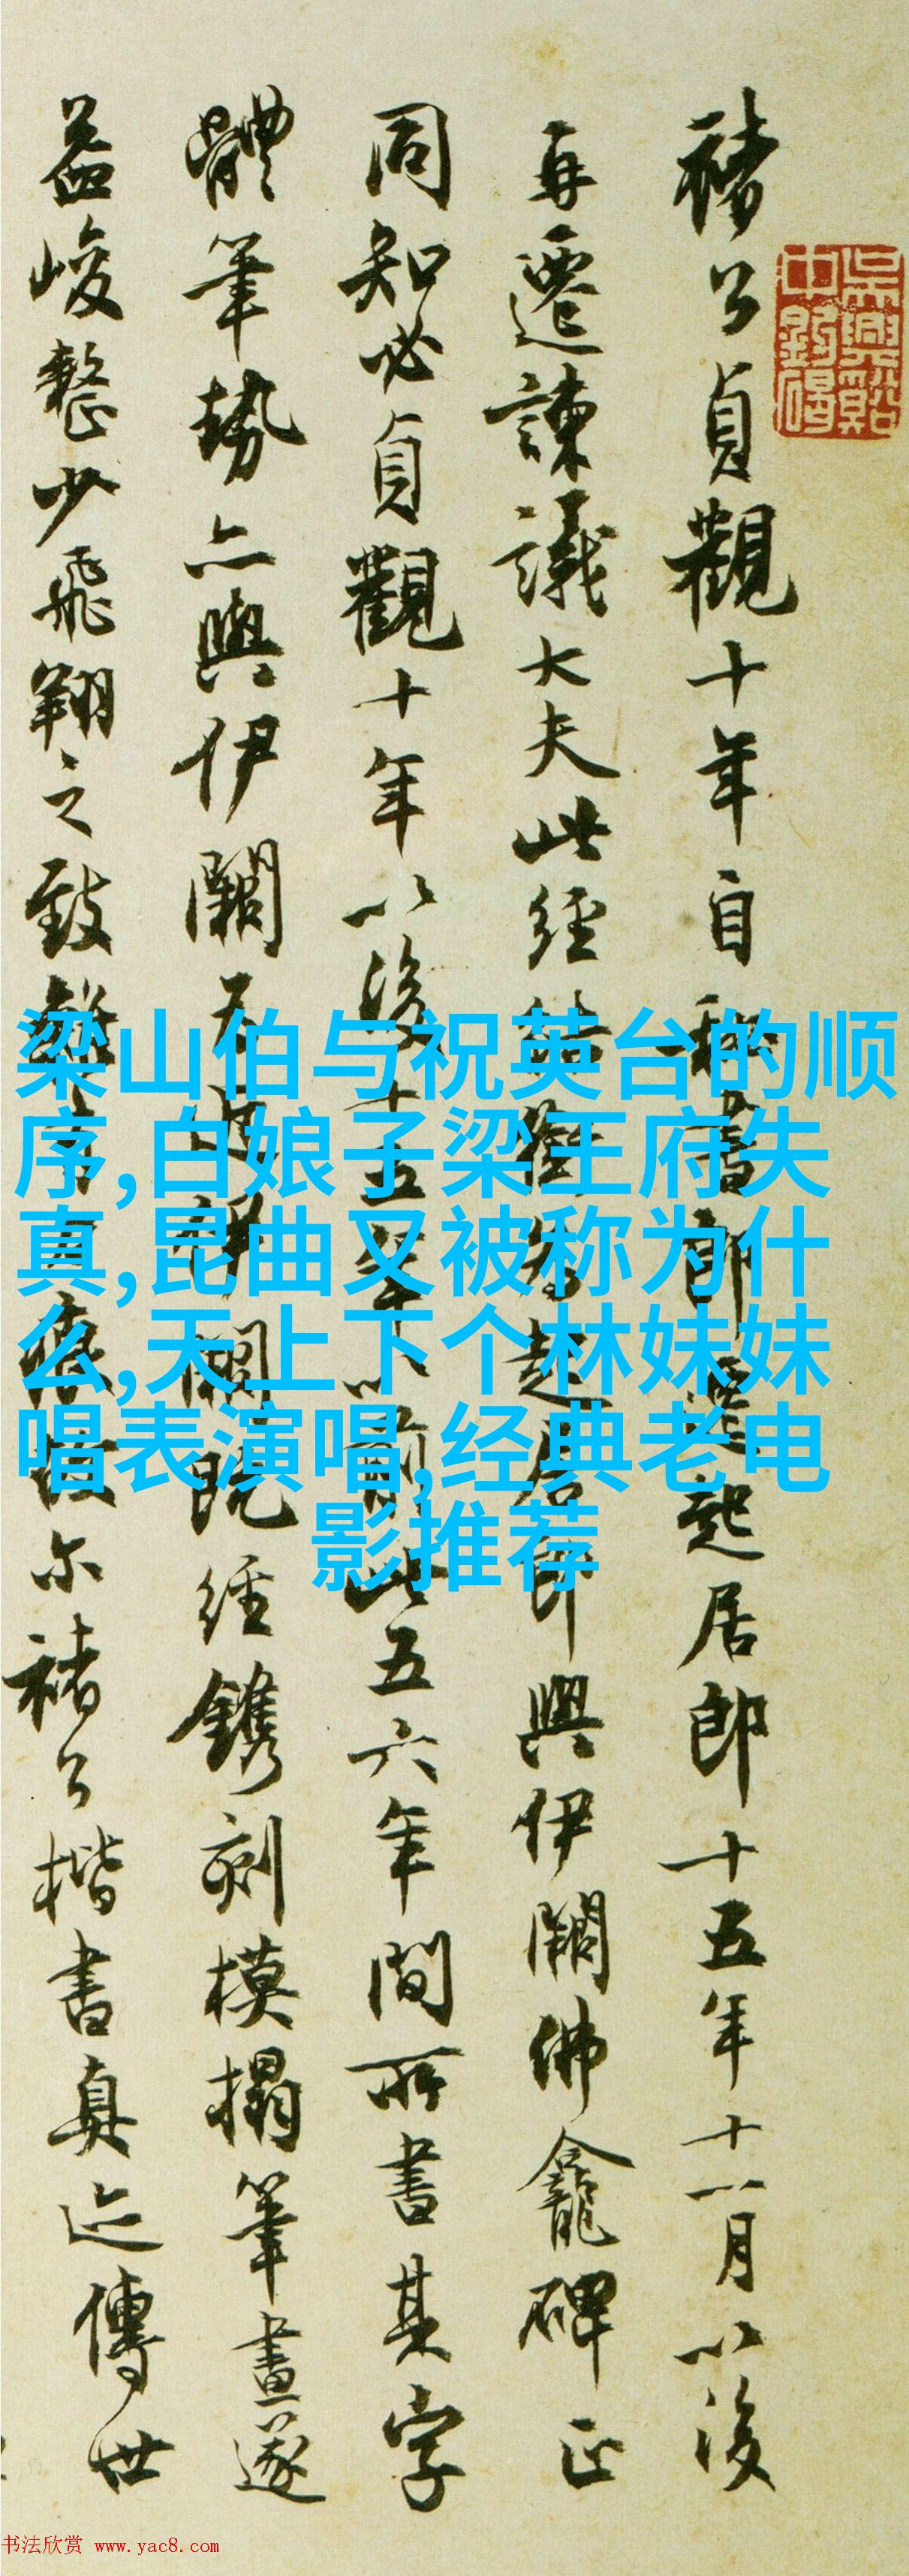 褚公貞觀十年自秘書郎遷起居郎十五年十一月以後
再遷諫議大夫此經結銜為起居郎與伊闕佛龕碑正
同知必貞觀十年以後十五年以前此五六年間所書其字
體筆勢亦與伊闕尤近闕既經鐫刻模搨筆畫遂
益峻整少飛翔之致痕尔褚公楷書真迹傳世
梁山伯与祝英台的顺
序,白娘子梁王府失
真,昆曲又被称为什
么,天上下个林妹妹
唱表演唱,经典老电
影推荐
书法欣赏 www.yac8.com